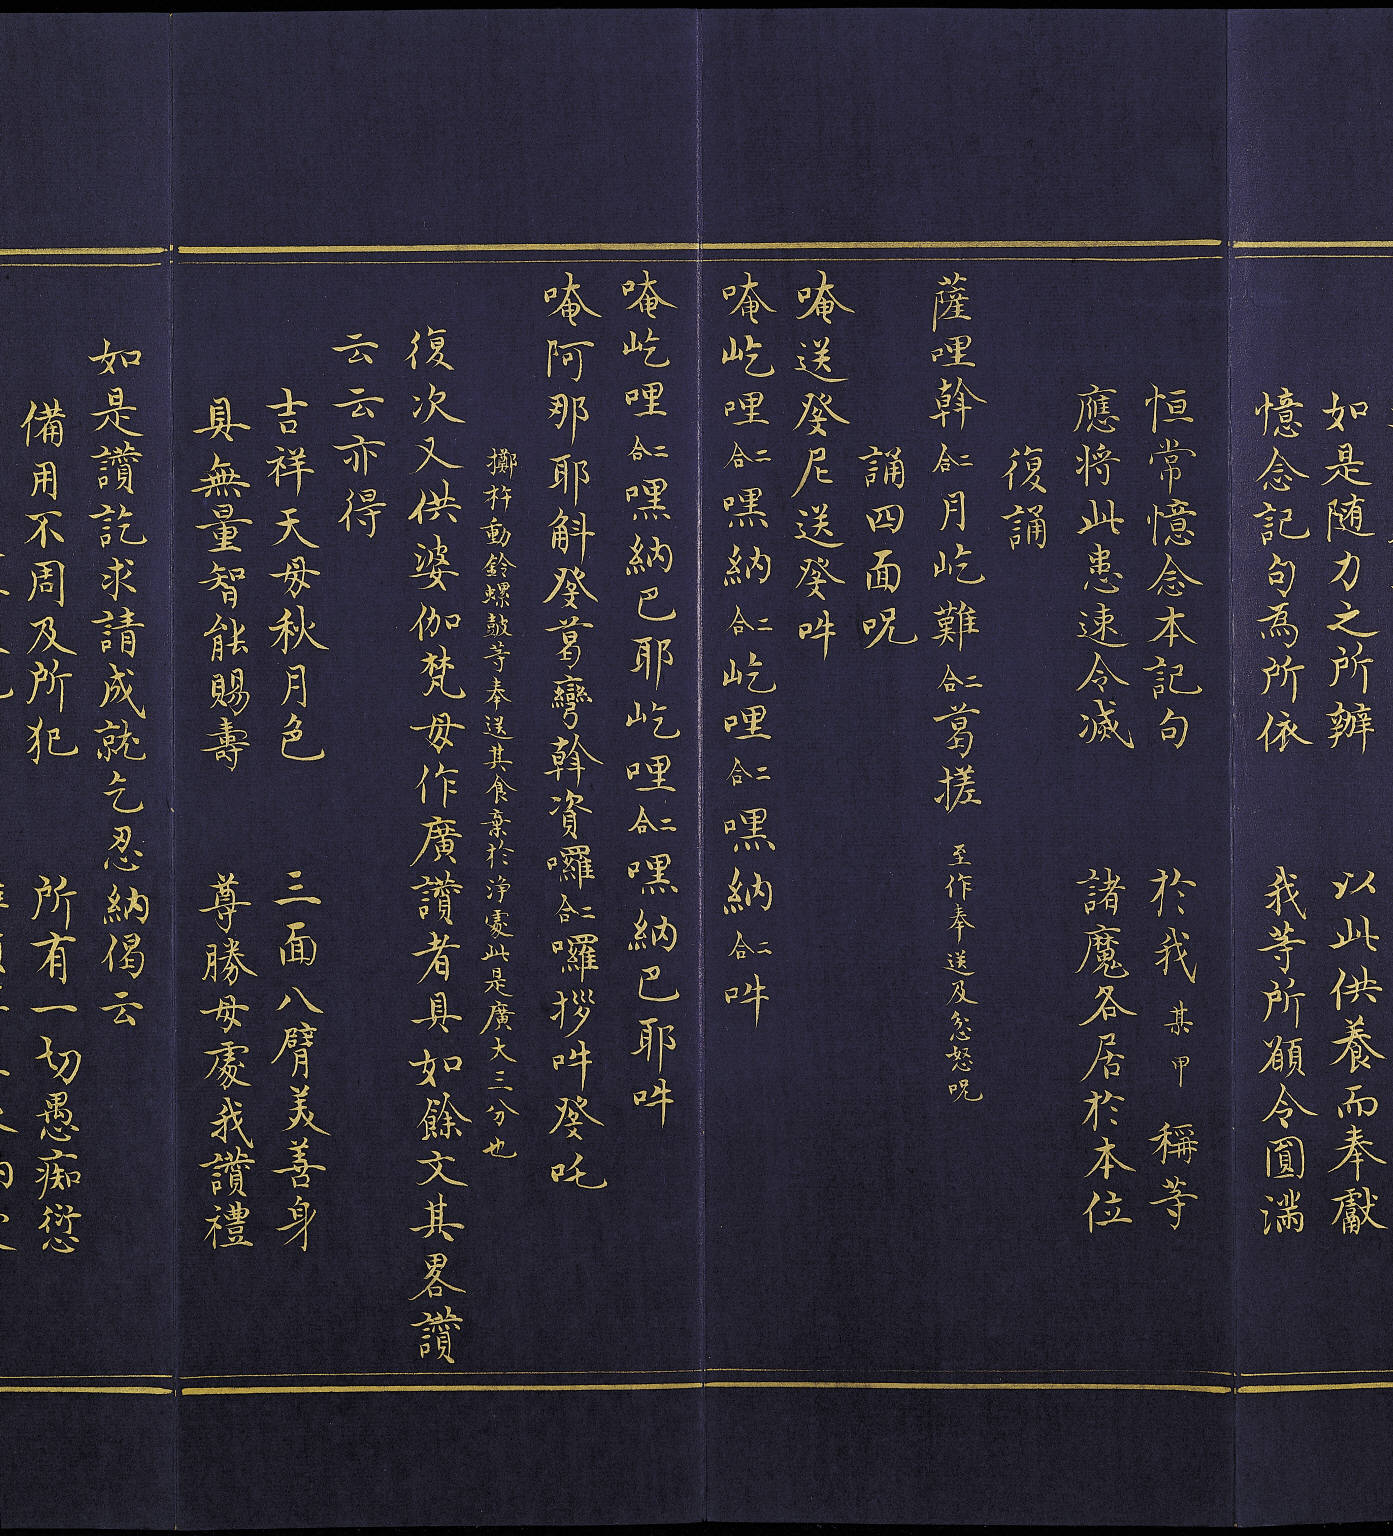 如是随力之所辦　以此供養而奉獻
憶念記句為所依　我等所願令圓滿
恒常憶念本記句　於我某甲稱等
應將此患速令滅　諸魔各居於本位
復誦
薩哩斡二合月屹難二合葛搓　至作奉送及忿怒呪
誦四面呪
唵送癹尼送癹吽
唵屹哩二合嘿納二合屹哩二合嘿納二合吽
唵屹哩二合嘿納巴耶屹哩二合嘿納巴耶吽
唵阿那耶斛癹葛彎斡資囉二合囉拶吽癹吒
擲杵動鈴螺皷等奉送其食棄於淨處此是廣大三分也
復次又供婆伽梵母作廣讚者具如餘文其畧讚
云云亦得
吉祥天母秋月色　三面八臂美善身
具無量智能賜壽　尊勝母處我讚禮
如是讚訖求請成就乞忍納偈云
備用不周及所犯　所有一切愚痴愆